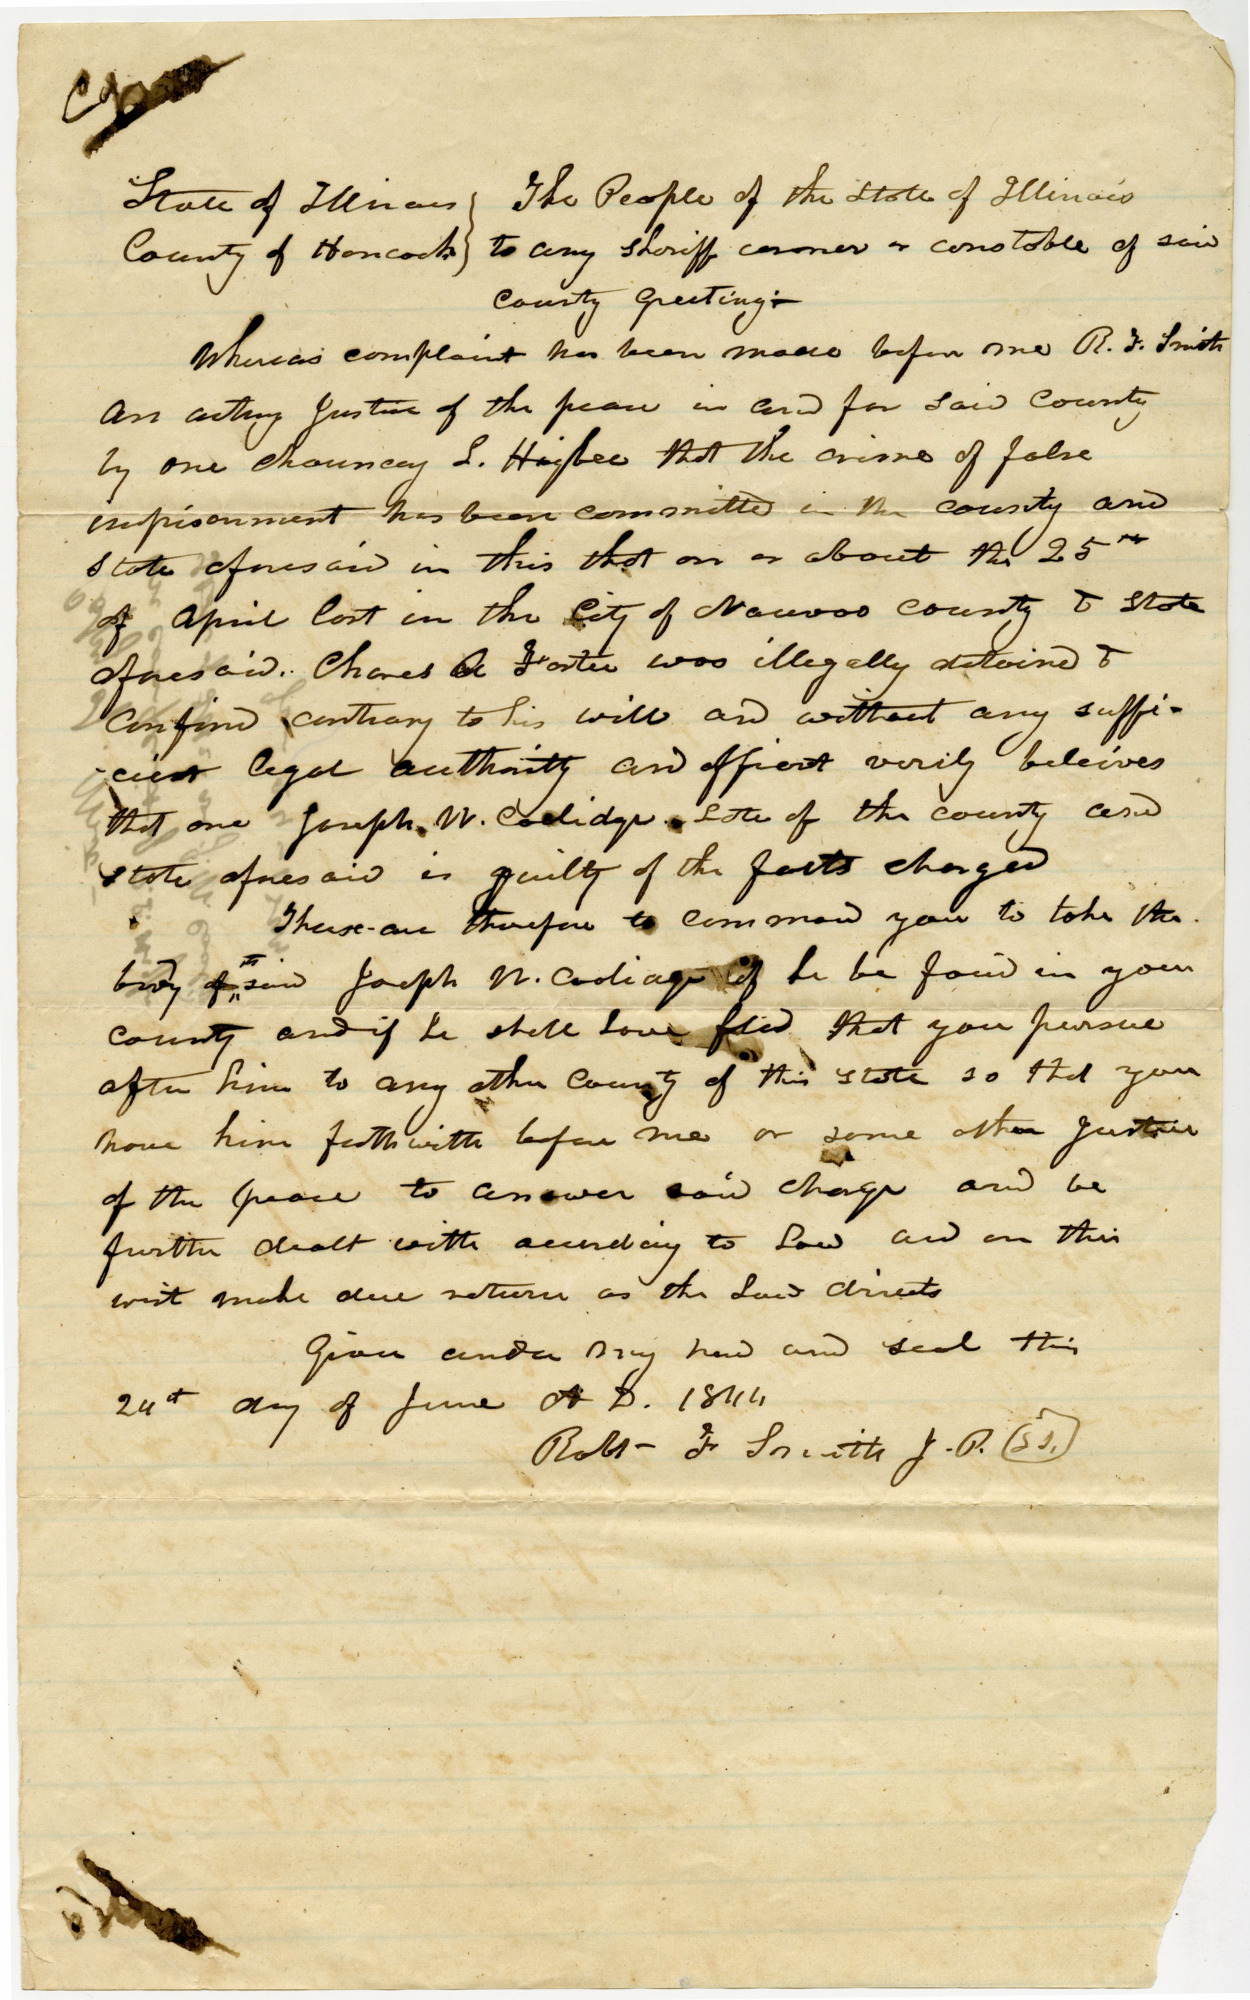 Copy
State of Illinois } The People of the State of Illinois
County of Hancock } to any Sheriff coroner or constable of said
county Greeting:—
Whereas complaint has been made before me R. F. Smith
an acting Justice of the peace in and for said County
by one Chauncey L. Higbee that the crime of false
imprisonment has been committed in the county and
state aforesaid in this that on or about the 25th
of April last in the City of Nauvoo county & State
aforesaid. Charles A Foster was illegally detained &
confined contrary to his will and without any suffi-
cient legal authority and affient verily beleives
that one Joseph W. Coolidge late of the county and
state aforesaid is guilty of the facts charged
These are therefore to command you to take the
body of said Joseph W. Coolidge if he be found in your
county and if he shall have fled that you pursue
after him to any other County of this state so that you
have him forthwith before me or some other Justice
of the peace to answer said charge and be
further dealt with according to Law and on this
writ make due return as the Law directs
Given under my hand and seal this
24th day of June A D. 1844
Robt F Smith J. P.